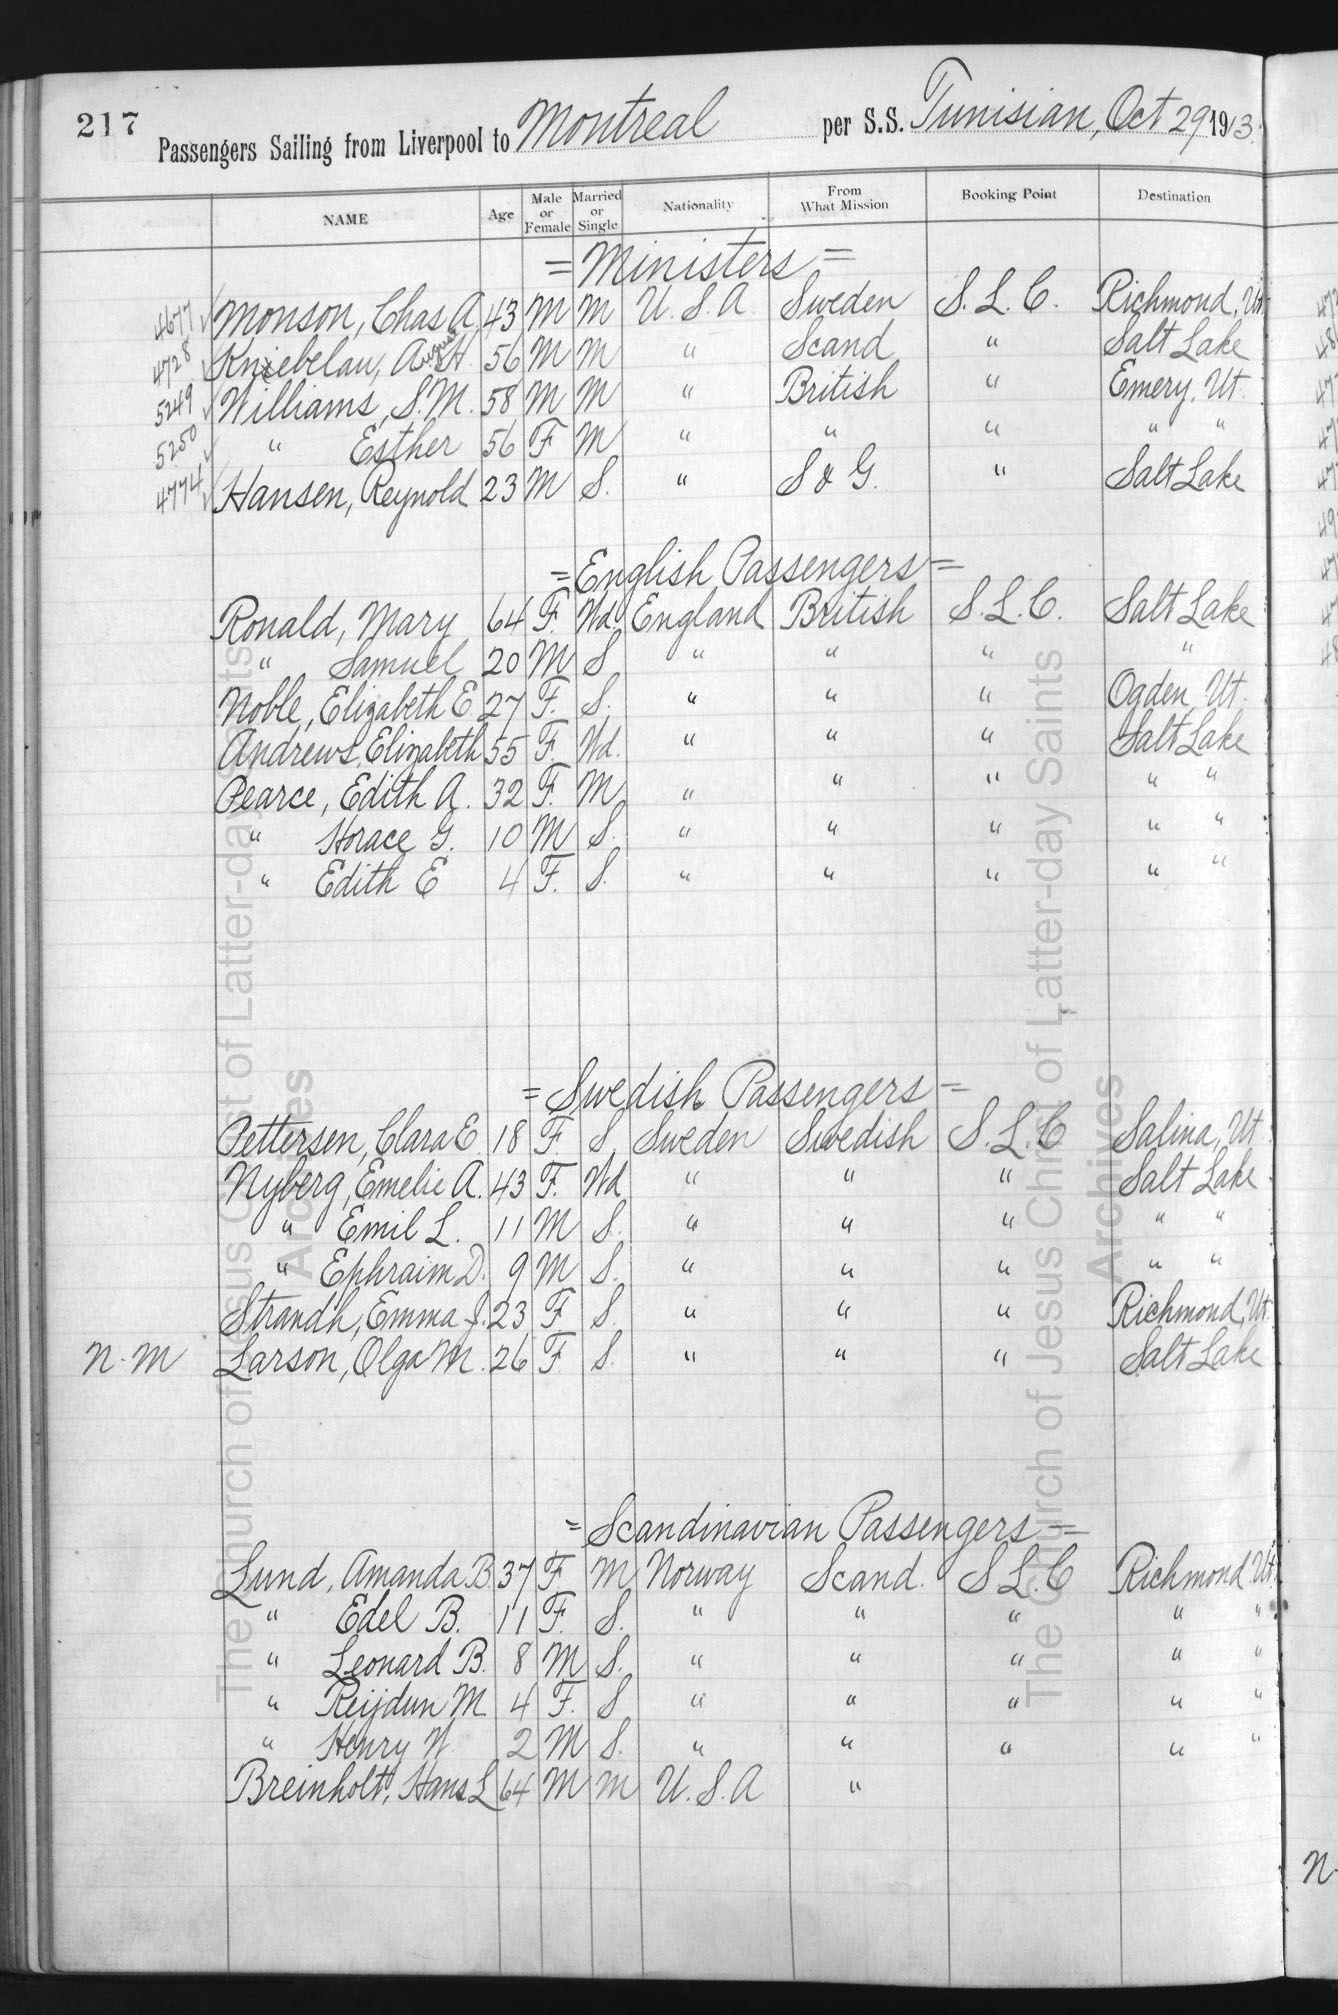 217
Passengers Sailing from Liverpool to Montreal per S.S. Tunisian, Oct 29 1913.
NAME Age Male or Female Married or Single Nationality From What Mission Booking Point Destination
= Ministers =
4677 Monson, Chas A. 43 M M U.S.A. Sweden S.L.C. Richmond, Ut.
4728 Kniebelau, August H. 56 M M " Scand " Salt Lake
5249 Williams, S.M. 58 M M " British " Emery, Ut.
5250 " Esther 56 F M " " " " "
4774 Hansen, Reynold 23 M S. " S & G. " Salt Lake
= English Passengers =
Ronald, Mary 64 F. Wd. England British S.L.C. Salt Lake
" Samuel 20 M S " " " "
Noble, Elizabeth E 27 F. S. " " " Ogden Ut.
Andrews, Elizabeth 55 F. Wd. " " " Salt Lake
Pearce, Edith A. 32 F. M " " " " "
" Horace G. 10 M S. " " " " "
" Edith E 4 F. S. " " " " "
= Swedish Passengers =
Pettersen, Clara E. 18 F. S. Sweden Swedish S.L.C Salina, Ut
Nyberg, Emelie A. 43 F. Wd " " " Salt Lake
" Emil L. 11 M S. " " " " "
" Ephraim D. 9 M S. " " " " "
Strandh, Emma J. 23 F S. " " " Richmond, Ut.
N.M Larson, Olga M. 26 F S. " " " Salt Lake
= Scandinavian Passengers =
Lund, Amanda B. 37 F. M Norway Scand. S.L.C Richmond Ut.
" Edel B. 11 F. S. " " " " "
" Leonard B. 8 M S. " " " " "
" Reijdun M. 4 F. S " " " " "
" Henry W 2 M S. " " " " "
Breinholt, Hans L 64 M M U.S.A "
The Church of Jesus Christ of Latter-day Saints
Archives
The Church of Jesus Christ of Latter-day Saints
Archives